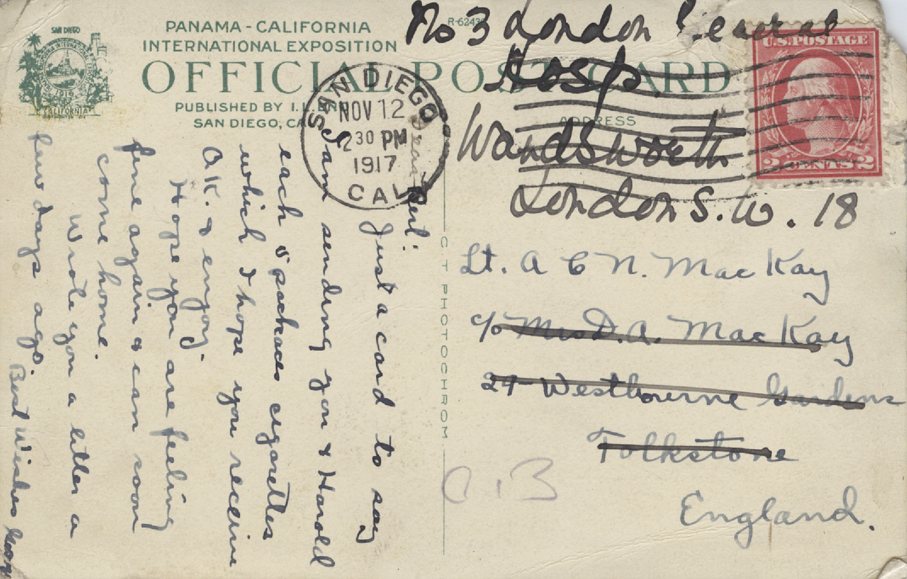 SAN DIEGO
PANAMA-CALIFORNIA
INTERNATIONAL EXPOSITION
OFFICIAL POST CARD
PUBLISHED BY I. L.
SAN DIEGO, CAL
ADDRESS
R-6243
SAN DIEGO
NOV 12
2 30 PM
1917
CAL.
U.S. POSTAGE
2 CENTS 2
No 3 London General
Hosp
Wandsworth
London S.W. 18
Lt. A C N. MacKay
c/o Mrs D. A. MacKay
24 Westbourne Gardens
Folkstone
England.
C.B
C T PHOTOCHROM
Dear
Just a card to say
I am sending you & Harold
each 5 packages cigarettes
which I hope you receive
O.K. & enjoy.
Hope you are feeling
fine again & can soon
come home.
Wrote you a letter a
few days ago.
Best Wishes